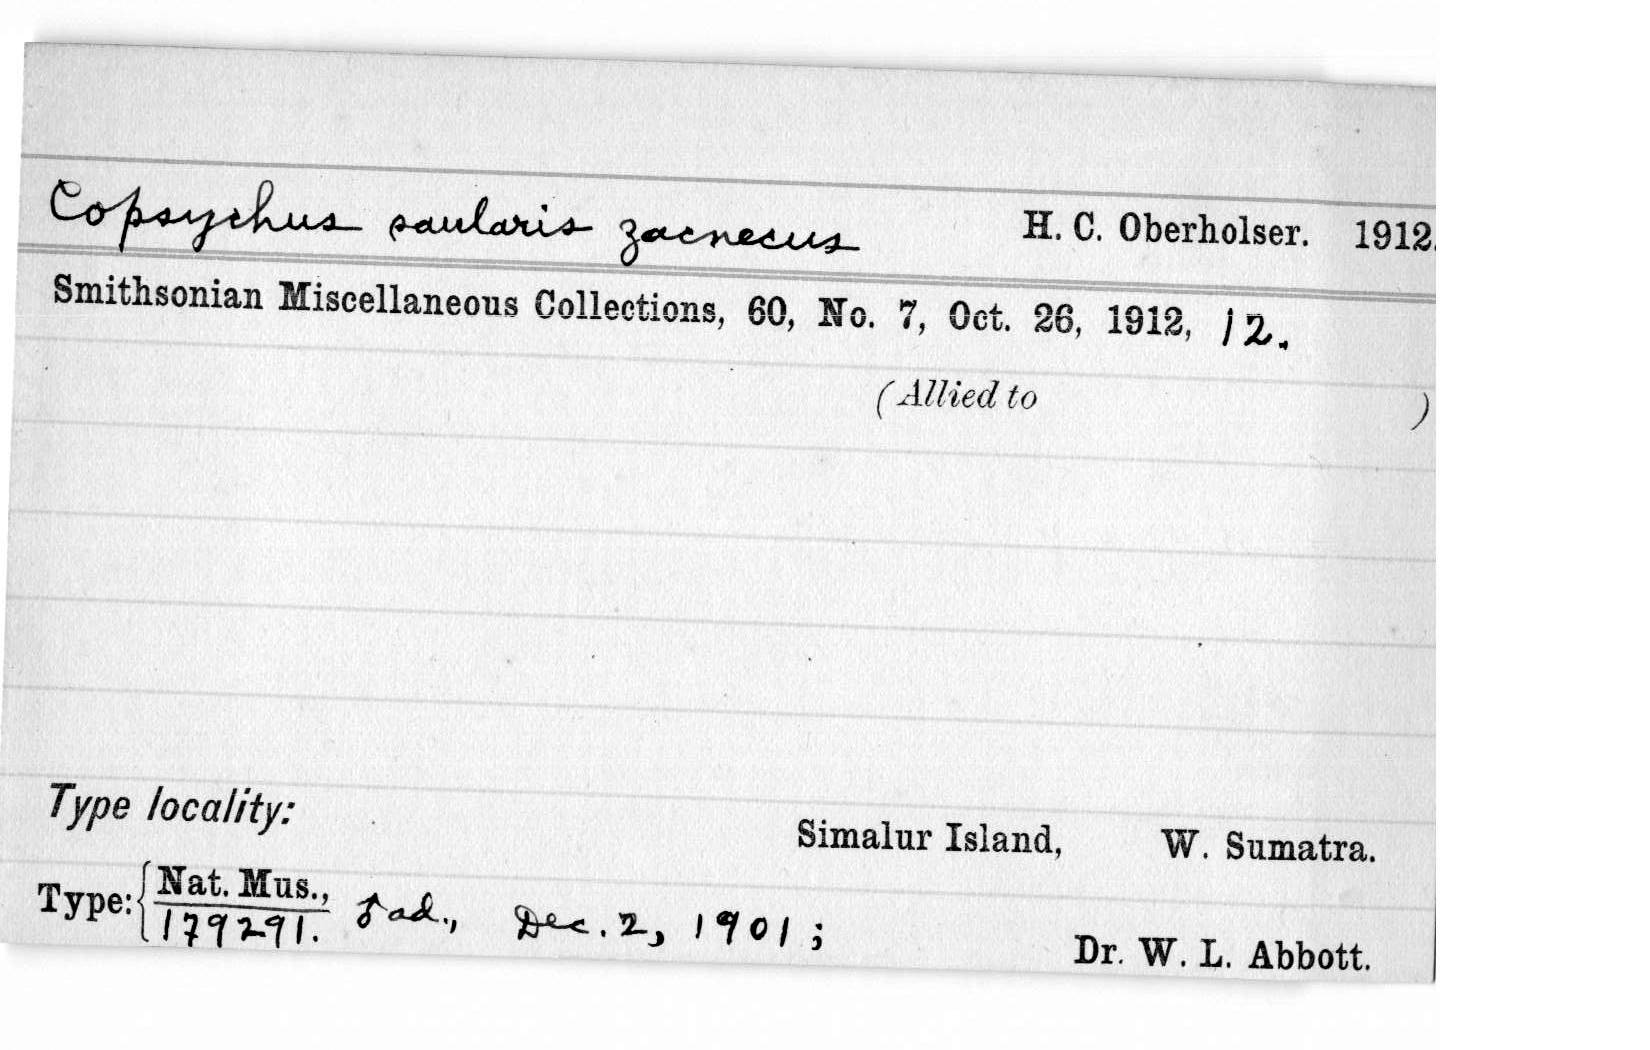 Copsychus saularis zacnecus H. C. Oberholser. 1912.
Smithsonian Miscellaneous Collections, 60, No. 7, Oct. 26, 1912, 12.
(Allied to )
Type locality:
Simalur Island, W. Sumatra.
Type: { Nat. Mus.,
179291. ♂ ad., Dec. 2, 1901;
Dr. W. L. Abbott.